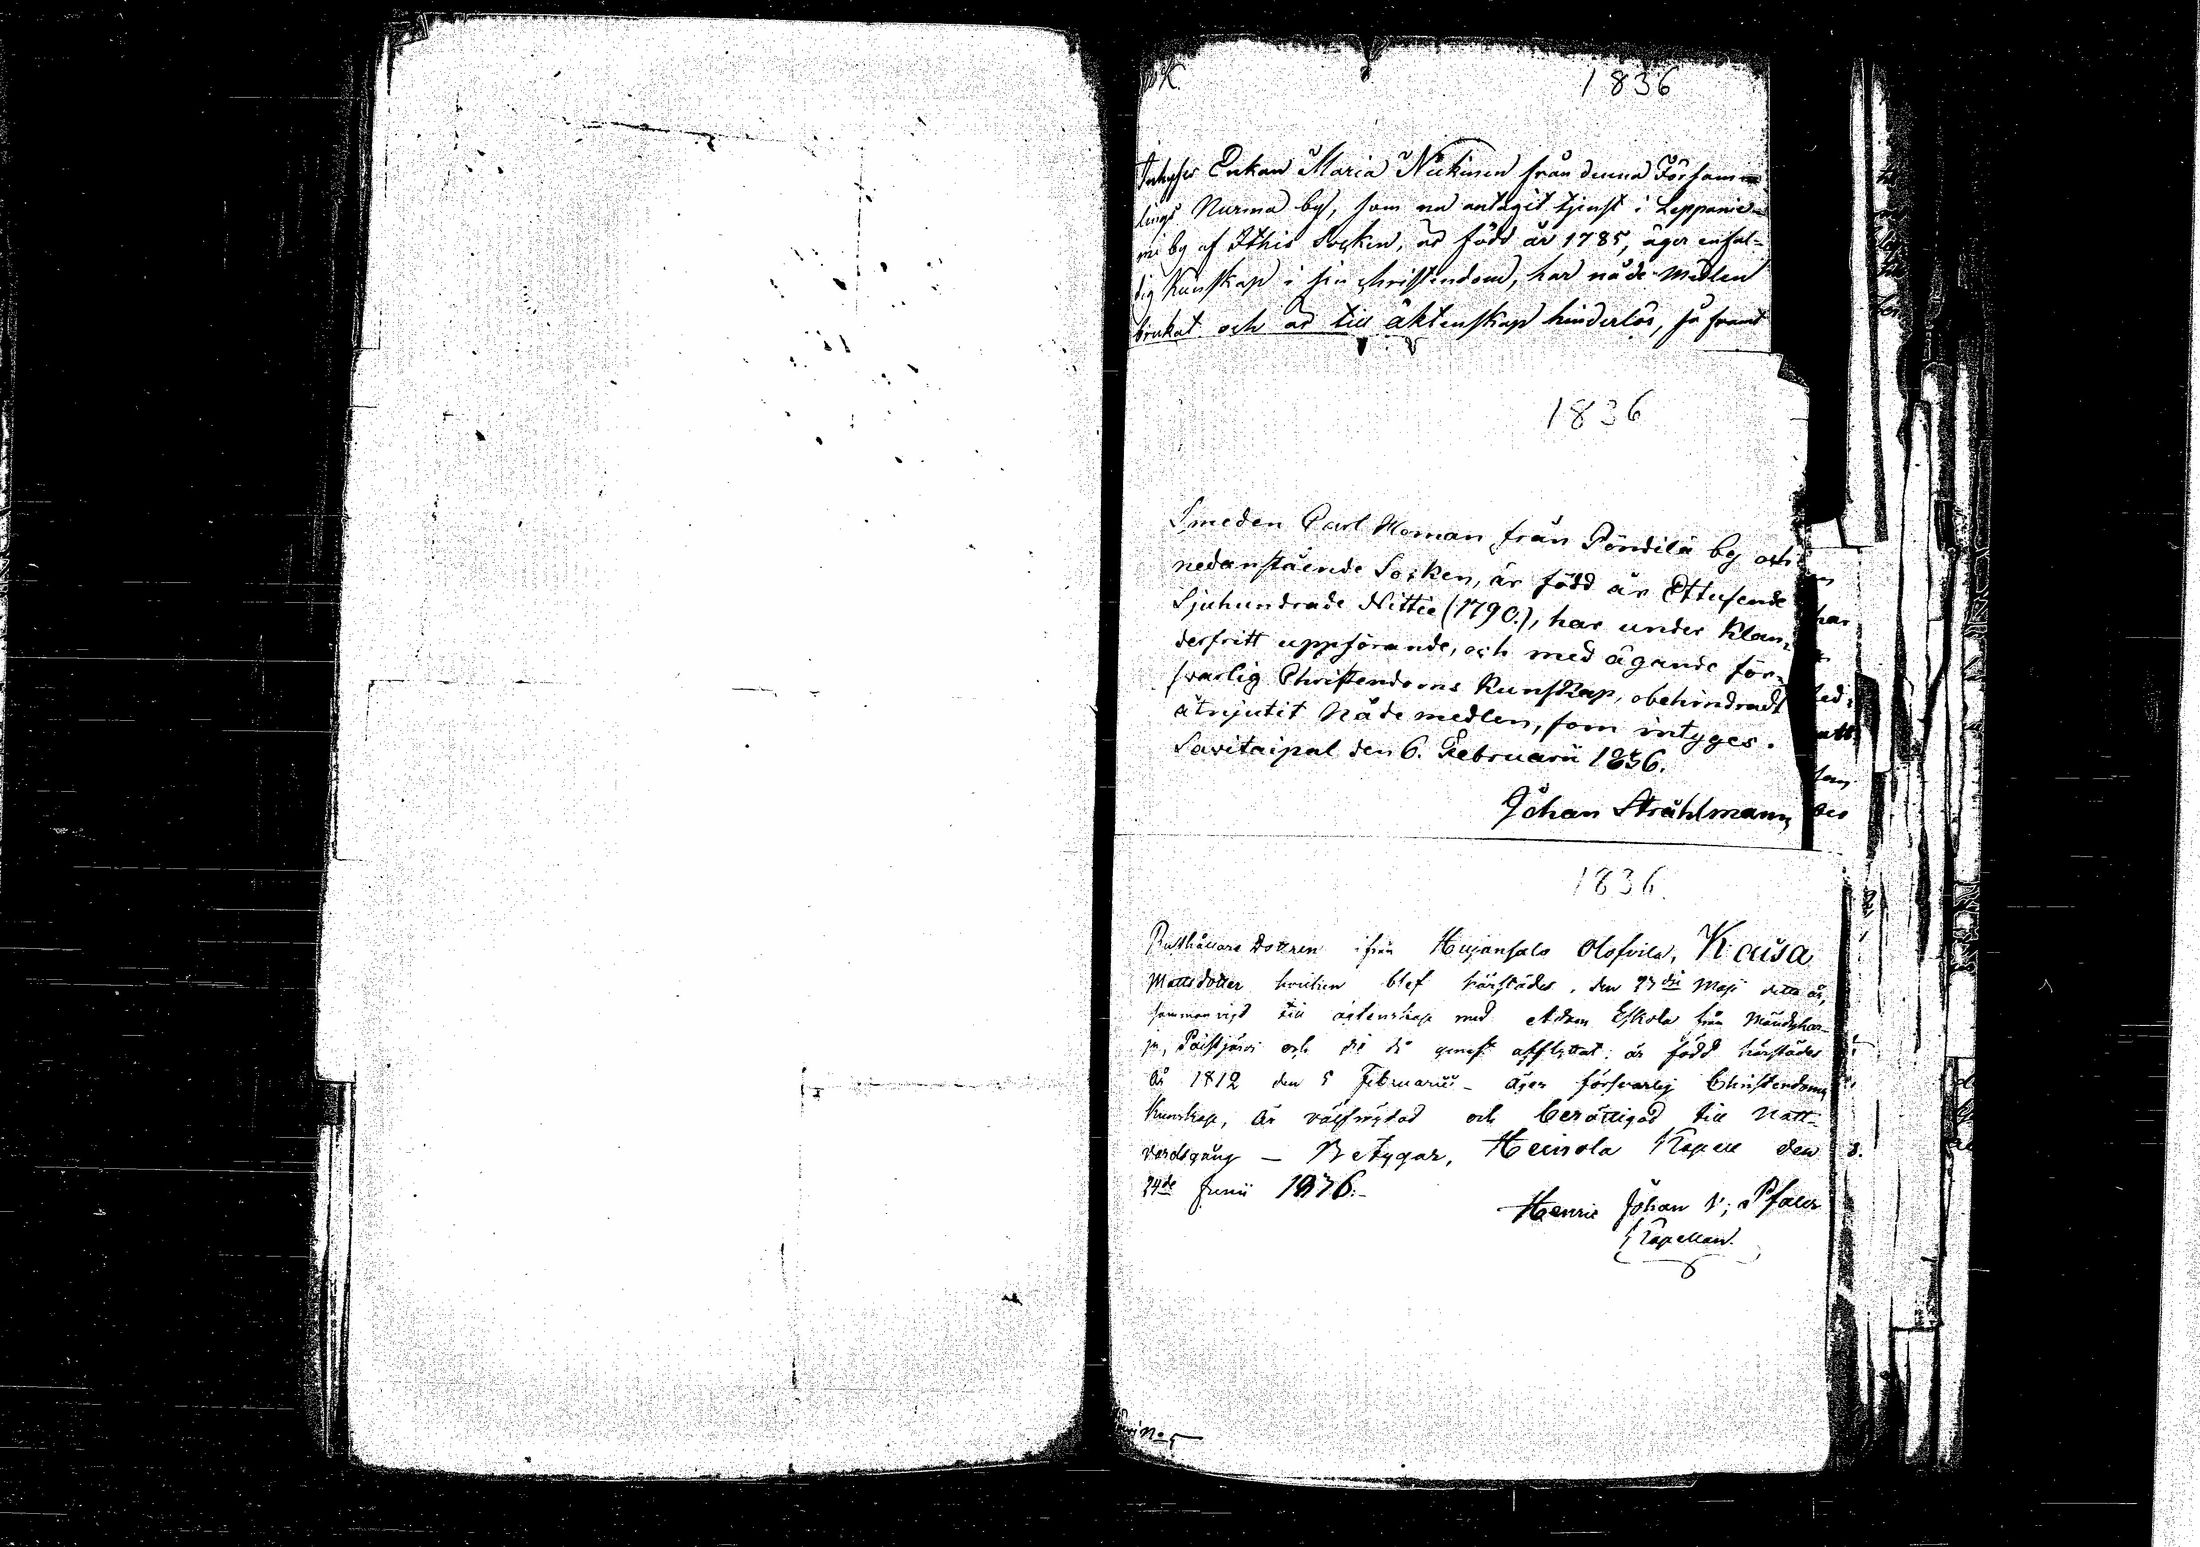 1836
Enkan Maria Niikinen från denna Församm
lings Nurma by, som nu antagit tjenst i Leppanie-
mi by af Ithis Socken, är född år 1785, äger enfal-
dig kunskap i sin christendom, har nåde-medlen
brukat och är till äktenskap hinderlös, så framt
1836
Smeden Carl Homan från Pöndilä by och
nedanstående Socken, är född år Ettusende
Sjuhundrade Nittie (1790.), har under Klan-
derfritt uppförande, och med ägande för-
svarlig Christendoms Kunskap, obehindradt
åtnjutit Nådemedlen, som intyges.
Savitaipal den 6. Februarii 1836.
Johan Stråhlmann
1836.
Rusthållare Dottren ifrån Hujansalo Olofvila, Kaisa
Mattsdotter hvilken blef härstädes, den 23 Maji detta år,
sammanvigd till ägtenskap med Adam Eskola från Mändyhar-
ju, Paistjärvi och dit då genast afflyttat; är född härstädes
år 1812 den 5 Februarii - äger försvarlig Christendoms
Kunskap, är välfrejdad och berättigad till Natt-
vardsgång - Betygar, Heinola Kapell den
24de Junii 1836.-
Henric Johan v; Pfaler
Kapellan.